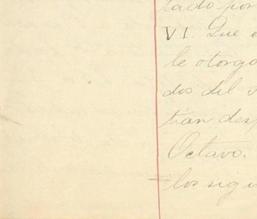 tado por
VI. Que
le otorga
dos del
tian des
Octavo.
los sig